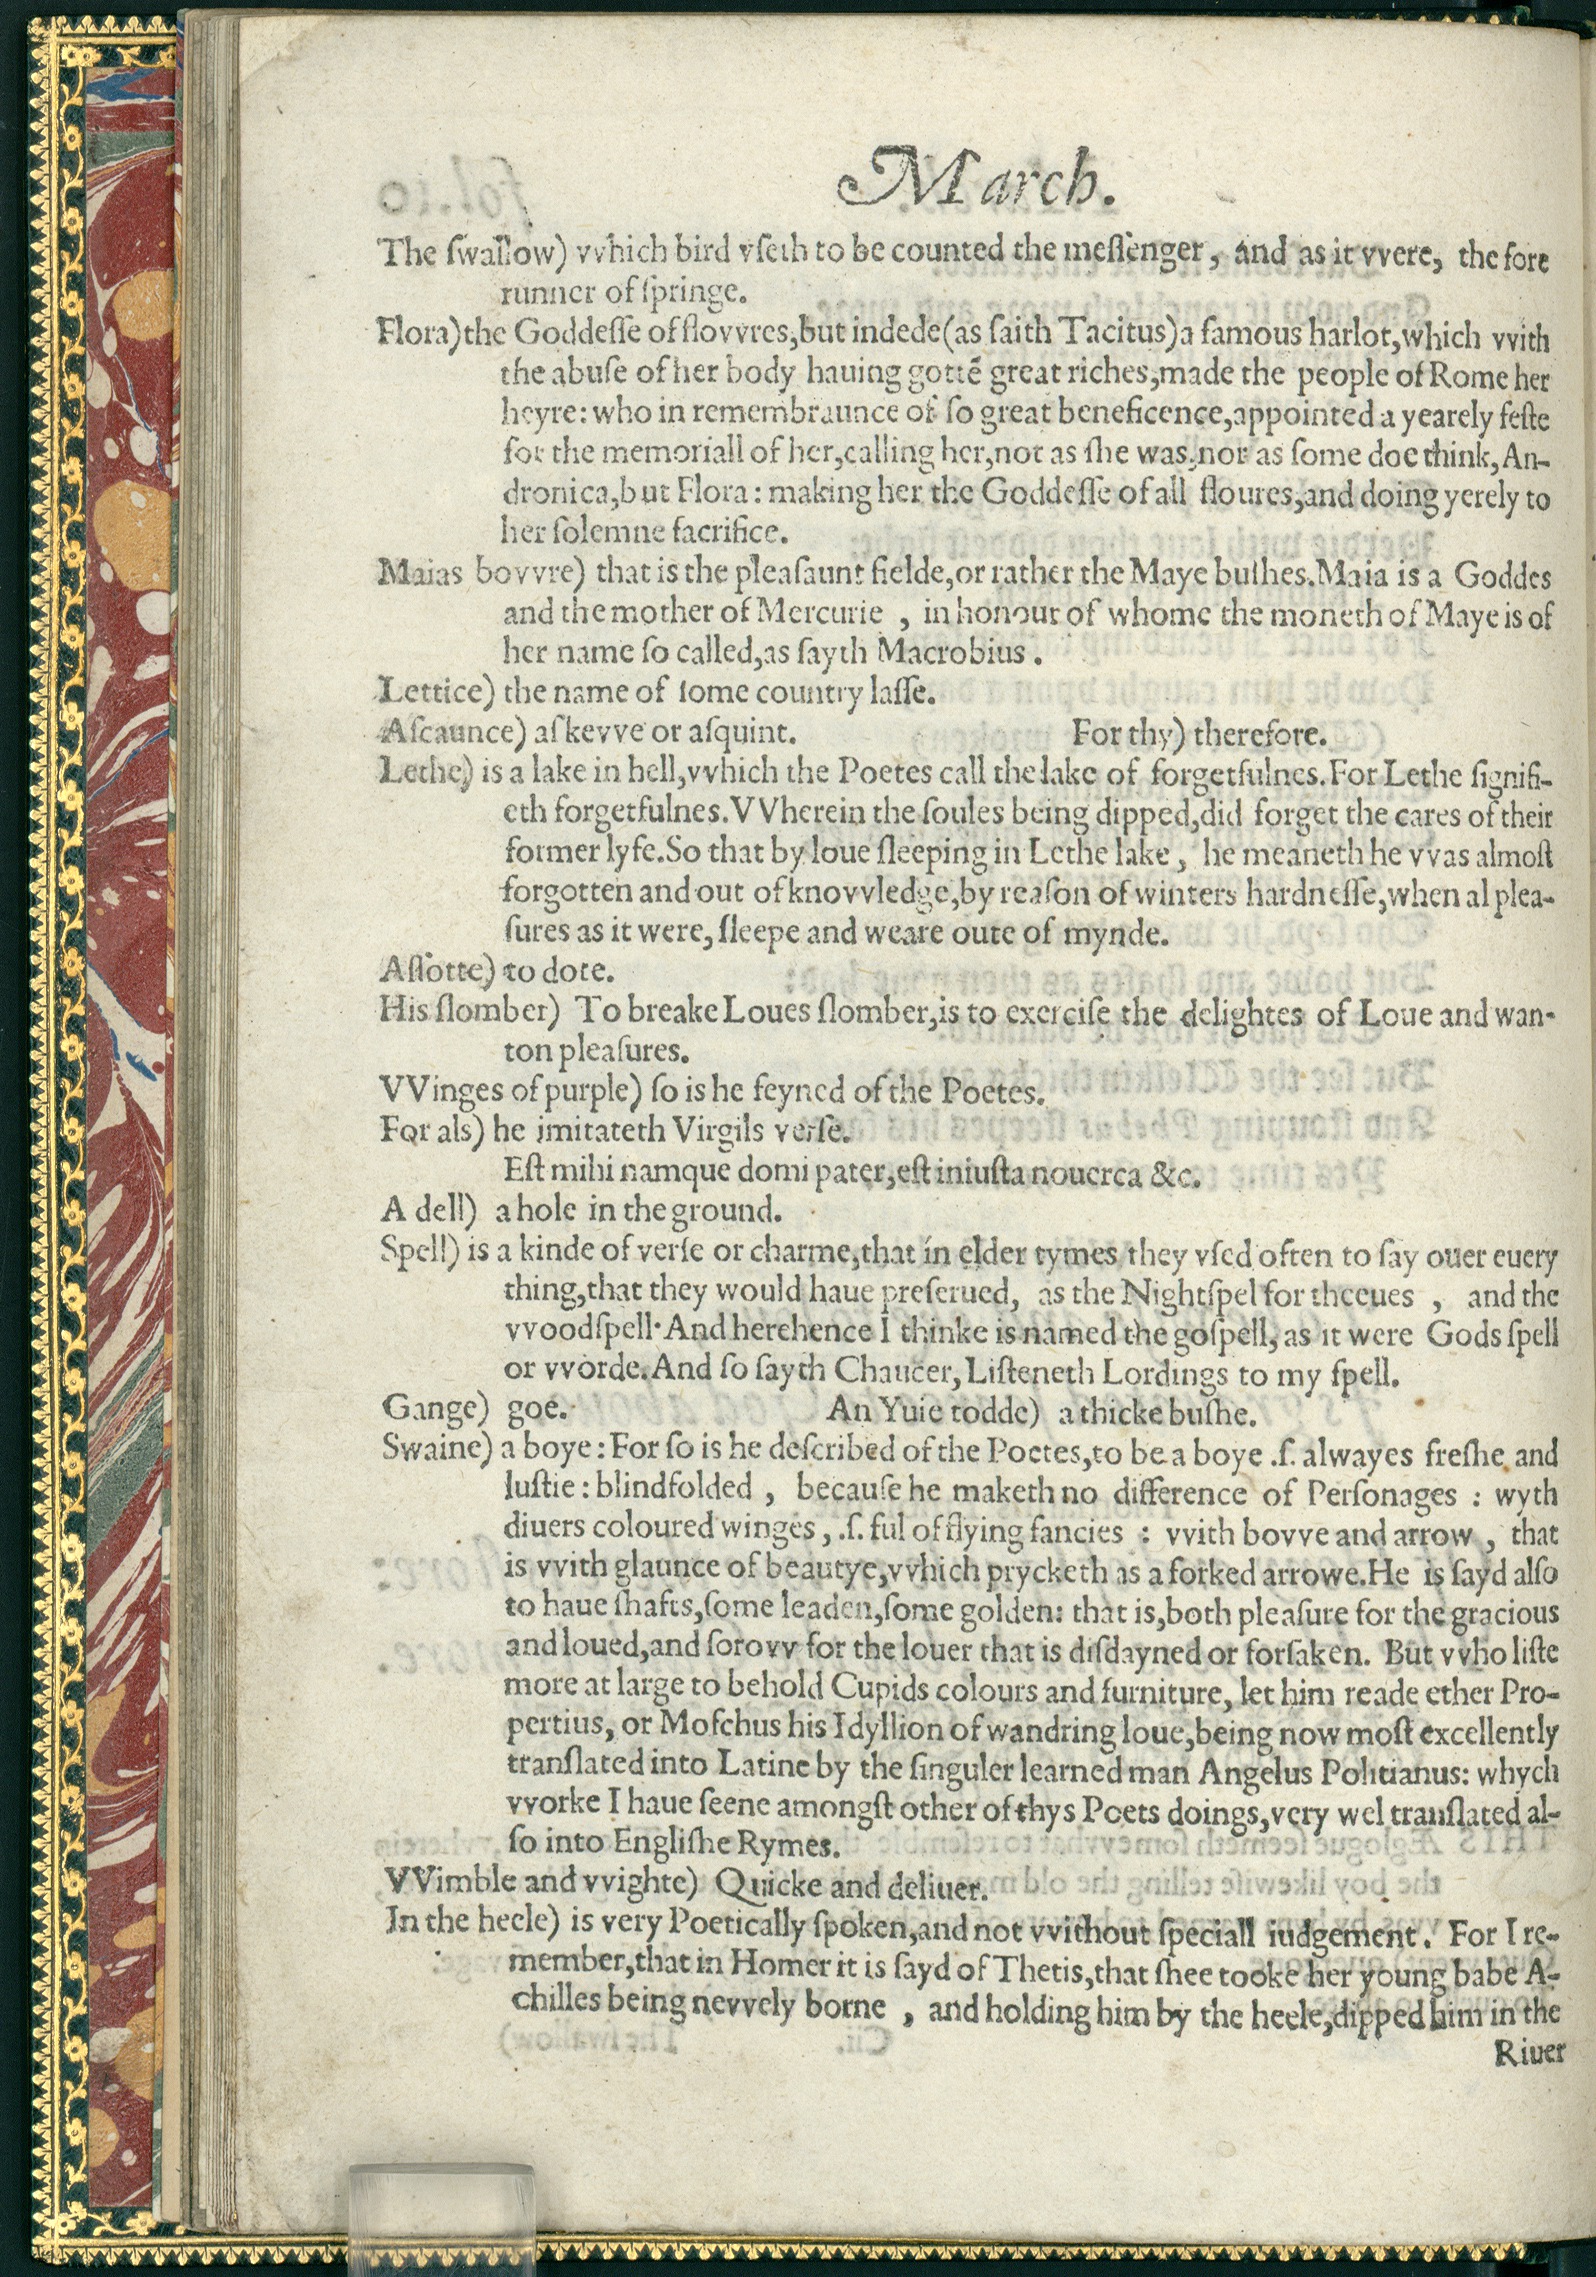 March.
The ſwallow) vvhich bird vſeth to be counted the meſſenger, and as it vvere, the fore
runner of ſpringe.
Flora) the Goddeſſe of flovvres, but indede (as ſaith Tacitus) a famous harlot, which vvith
the abuſe of her body hauing gottẽ great riches, made the people of Rome her
heyre: who in remembraunce of ſo great beneficence, appointed a yearely feſte
for the memoriall of her, calling her, not as ſhe was, nor as ſome doe think, An-
dronica, but Flora: making her the Goddeſſe of all floures, and doing yerely to
her ſolemne ſacrifice.
Maias bovvre) that is the pleaſaunt fielde, or rather the Maye buſhes. Maia is a Goddes
and the mother of Mercurie, in honour of whome the moneth of Maye is of
her name ſo called, as ſayth Macrobius.
Lettice) the name of ſome country laſſe.
Aſcaunce) aſkevve or aſquint. For thy) therefore.
Lethe) is a lake in hell, vvhich the Poetes call the lake of forgetfulnes. For Lethe ſignifi-
eth forgetfulnes. VVherein the ſoules being dipped, did forget the cares of their
former lyfe. So that by loue ſleeping in Lethe lake, he meaneth he vvas almoſt
forgotten and out of knovvledge, by reaſon of winters hardneſſe, when al plea-
ſures as it were, ſleepe and weare oute of mynde.
Aſſotte) to dote.
His ſlomber) To breake Loues ſlomber, is to exerciſe the delightes of Loue and wan-
ton pleaſures.
VVinges of purple) ſo is he feyned of the Poetes.
For als) he imitateth Virgils verſe.
Eſt mihi namque domi pater, eſt iniuſta nouerca &c.
A dell) a hole in the ground.
Spell) is a kinde of verſe or charme, that in elder tymes they vſed often to ſay ouer euery
thing, that they would haue preſerued, as the Nightſpel for theeues, and the
vvoodſpell. And herehence I thinke is named the goſpell, as it were Gods ſpell
or vvorde. And ſo ſayth Chaucer, Liſteneth Lordings to my ſpell.
Gange) goe. An Yuie todde) a thicke buſhe.
Swaine) a boye: For ſo is he deſcribed of the Poetes, to be a boye .ſ. alwayes freſhe and
luſtie: blindfolded, becauſe he maketh no difference of Perſonages: wyth
diuers coloured winges, .ſ. ful of flying fancies: vvith bovve and arrow, that
is vvith glaunce of beautye, vvhich prycketh as a forked arrowe. He is ſayd alſo
to haue ſhafts, ſome leaden, ſome golden: that is, both pleaſure for the gracious
and loued, and ſorovv for the louer that is diſdayned or forſaken. But vvho liſte
more at large to behold Cupids colours and furniture, let him reade ether Pro-
pertius, or Moſchus his Idyllion of wandring loue, being now moſt excellently
tranſlated into Latine by the ſinguler learned man Angelus Politianus: whych
vvorke I haue ſeene amongſt other of thys Poets doings, very wel tranſlated al-
ſo into Engliſhe Rymes.
VVimble and vvighte) Quicke and deliuer.
In the heele) is very Poetically ſpoken, and not vvithout ſpeciall iudgement. For I re-
member, that in Homer it is ſayd of Thetis, that ſhee tooke her young babe A-
chilles being nevvely borne, and holding him by the heele, dipped him in the
Riuer